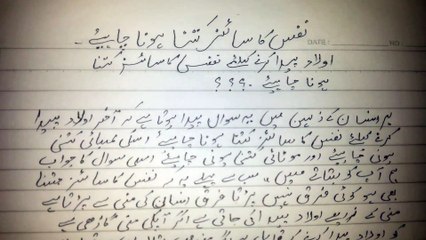 نفس کا سائز کتنا ہونا چاہیئے۔
DATE: NO:
اولاد پیدا کرنے کیلئے نفس کا سائز کتنا
ہونا چاہیئے ؟؟؟
ہر انسان کے ذہین میں یہ سوال پیدا ہوتا ہے کہ آخر اولاد پیدا
کرنے کیلئے نفس کا سائز کتنا ہونا چاہیئے اسکی لمبائی کتنی
ہونی چاہیئے اور موٹائی کتنی ہونی چاہیئے اسی سوال کا جواب
ہم آپ کو بتاتے ہیں۔ سب سے پہلے یہ کہ نفس کا سائز جتنا
بھی ہو کوئی فرق نہیں پڑتا فرق انسان کی منی سے پڑتا ہے
منی کے ذریعے اولاد پیدا کی جاتی ہے اگر آپکی منی گاڑھی ہے
تو اولاد پیدا کرنے کے قابل